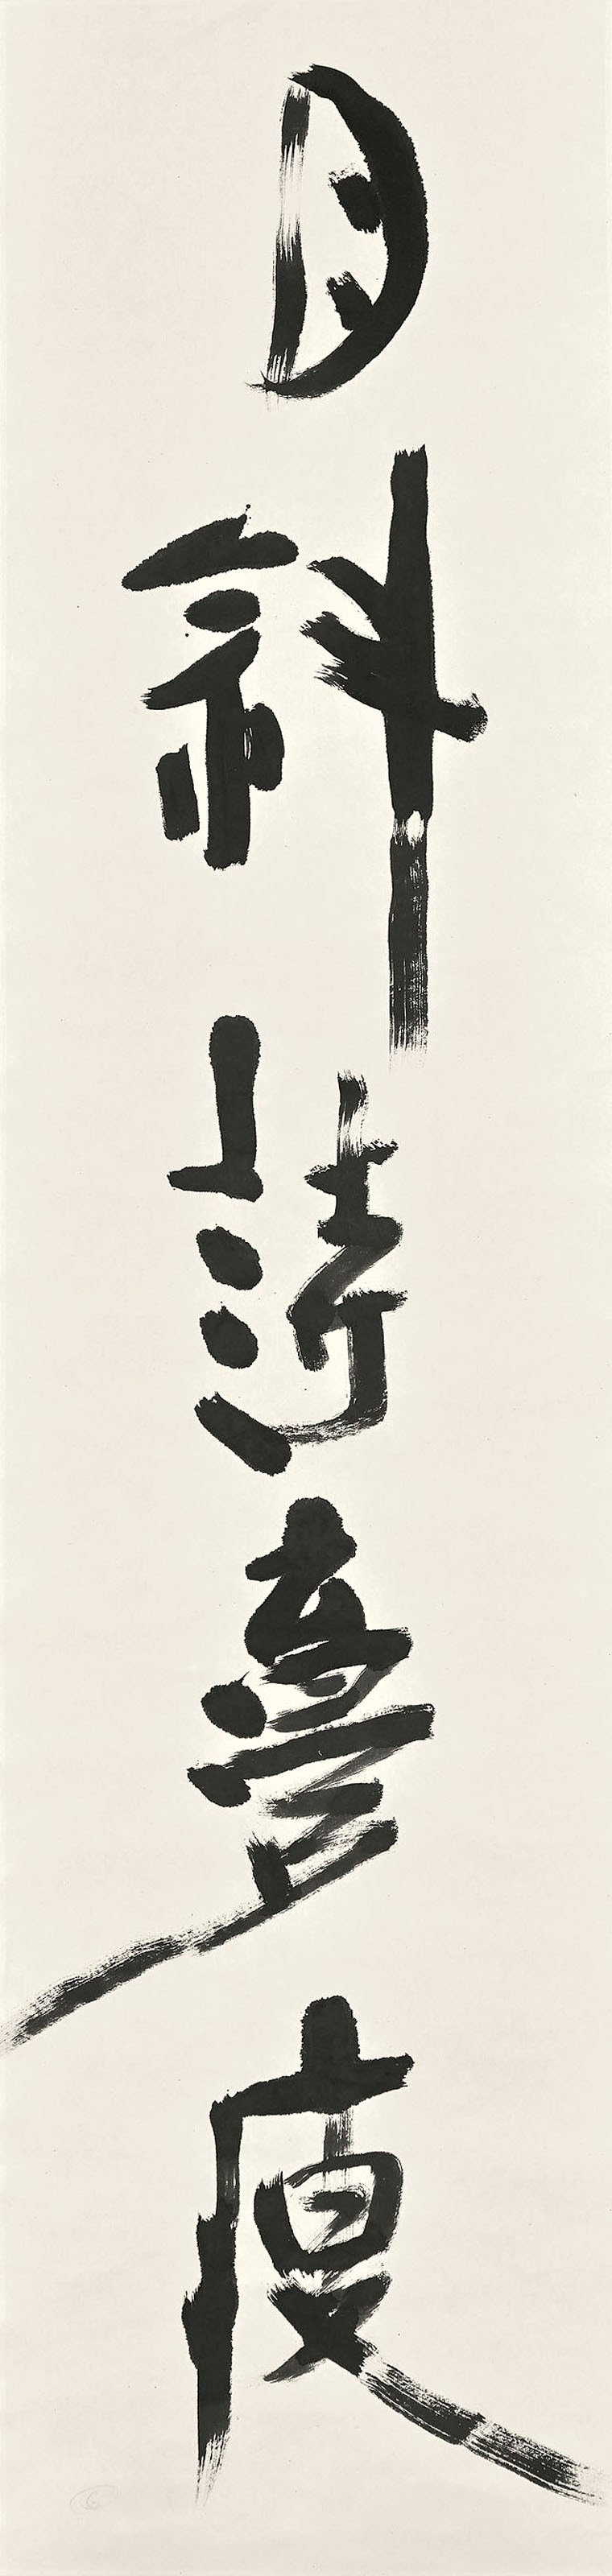 月斜詩夢瘦